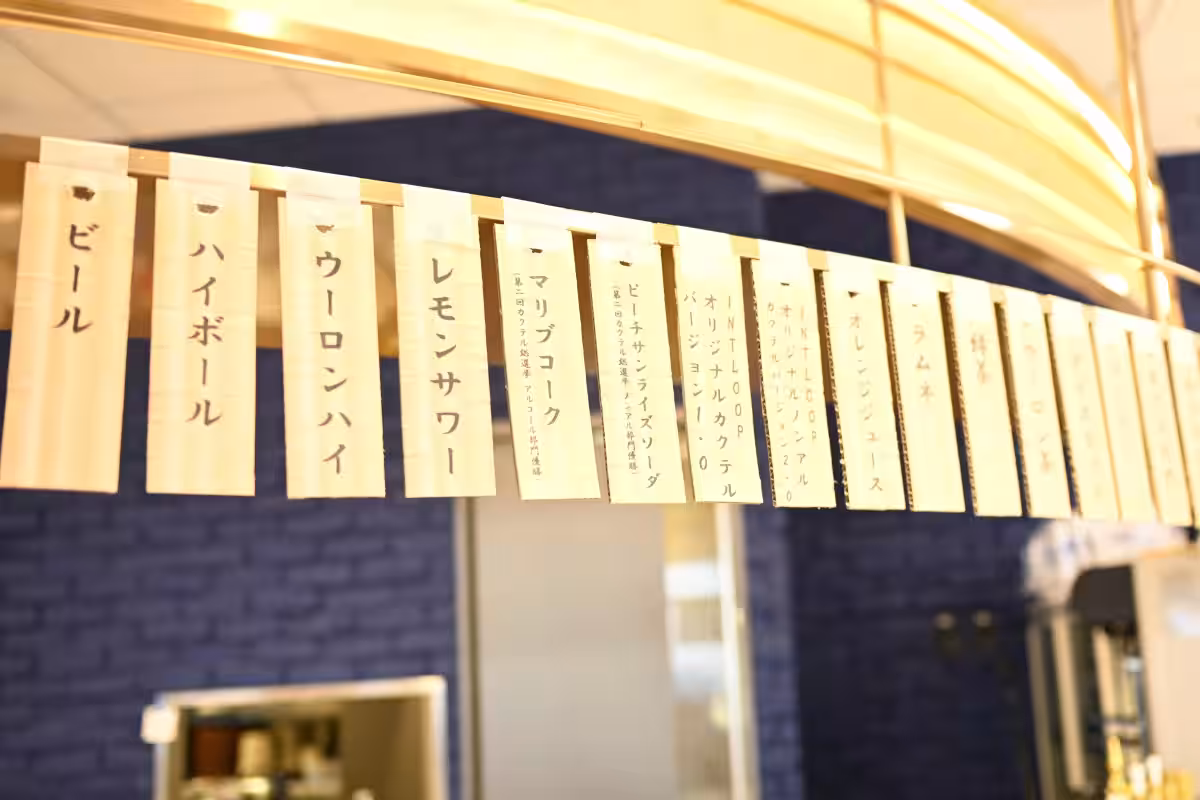 ビール
ハイボール
ウーロンハイ
レモンサワー
マリブコーク
(第二回カクテル総選挙 アルコール部門優勝)
ピーチサンライズソーダ
(第二回カクテル総選挙 ノンアル部門優勝)
INTLOOP
オリジナルカクテル
バージョン1.0
INTLOOP
オリジナルノンアル
カクテルバージョン2.0
オレンジジュース
ラムネ
緑茶